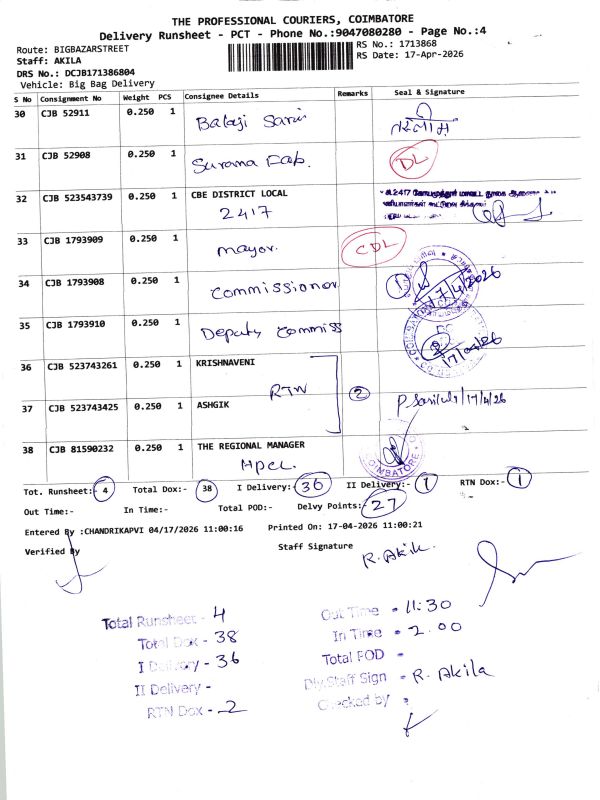 THE PROFESSIONAL COURIERS, COIMBATORE
Delivery Runsheet - PCT - Phone No.:9047080280 - Page No.:4
Route: BIGBAZARSTREET
Staff: AKILA
DRS No.: DCJB171386804
Vehicle: Big Bag Delivery
RS No.: 1713868
RS Date: 17-Apr-2026
S No Consignment No Weight PCS Consignee Details Remarks Seal & Signature
30 CJB 52911 0.250 1 Balaji
31 CJB 52908 0.250 1 Surama Fab. DL
32 CJB 523543739 0.250 1 CBE DISTRICT LOCAL
2417
33 CJB 1793909 0.250 1 mayor. CDL
34 CJB 1793908 0.250 1 Commissioner 1 17/4/2026
35 CJB 1793910 0.250 1 Deputy Commiss 17/04/26
36 CJB 523743261 0.250 1 KRISHNAVENI
RTN 2
37 CJB 523743425 0.250 1 ASHGIK 17/4/26
38 CJB 81590232 0.250 1 THE REGIONAL MANAGER
HPCL COIMBATORE
Tot. Runsheet:- 4 Total Dox:- 38 I Delivery:- 36 II Delivery:- 1 RTN Dox:- 1
Out Time:- In Time:- Total POD:- Delvy Points:- 27
Entered By :CHANDRIKAPVI 04/17/2026 11:00:16 Printed On: 17-04-2026 11:00:21
Verified By Staff Signature R. Akila.
Total Runsheet - 4
Total Dox - 38
I Delivery - 36
II Delivery -
RTN Dox - 2
Out Time - 11:30
In Time - 2.00
Total POD -
Dly.Staff Sign - R. Akila
Checked by